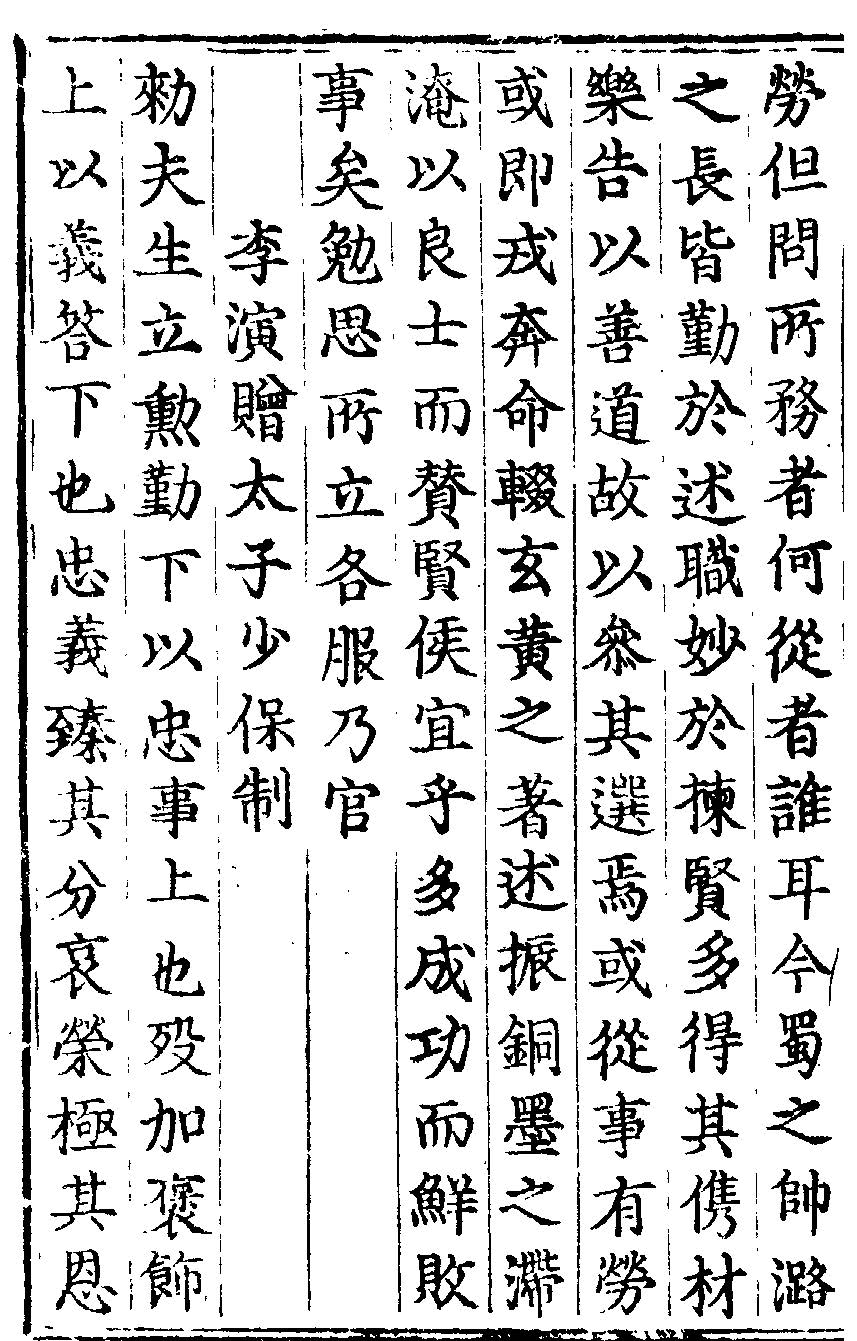 勞但問所務者何從者誰耳今蜀之帥潞
之長皆勤於述職妙於揀賢多得其儁材
樂告以善道故以叅其選焉或從事有勞
或即戎奔命輟玄黄之著述振銅墨之滯
淹以良士而賛賢侯宜乎多成功而鮮敗
事矣勉思所立各服乃官
李演贈太子少保制
勑夫生立勲勤下以忠事上也殁加褒飾
上以義答下也忠義臻其分哀榮極其恩